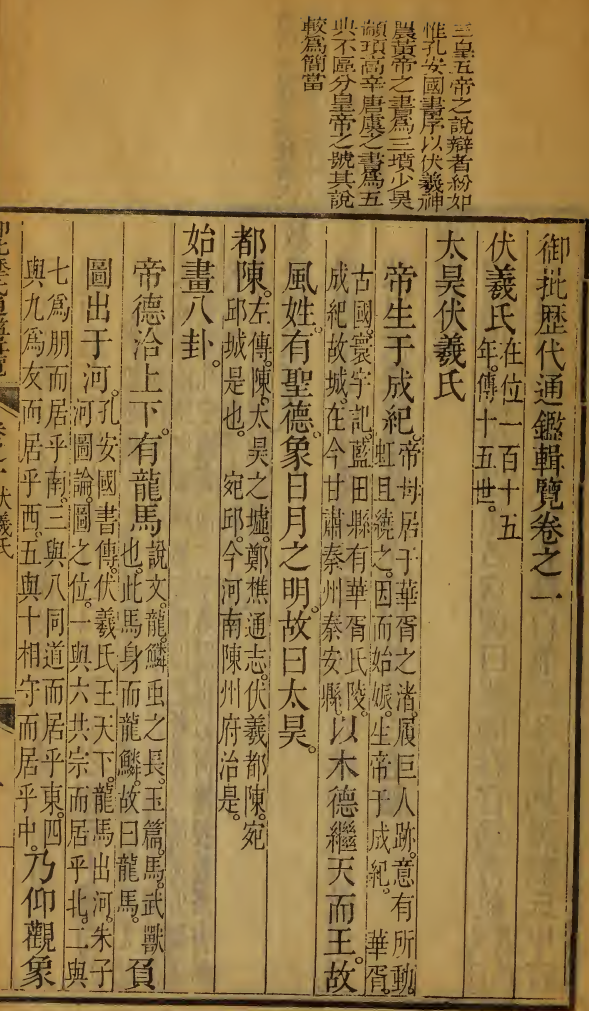 三皇五帝之說辯者紛如
惟孔安國書序以伏羲神
農黃帝之書爲三墳少昊
顓頊高辛唐虞之書爲五
典不區分皇帝之號其說
較爲簡當
御批歷代通鑑輯覽卷之一
伏羲氏在位一百十五
年。傳十五世。
太昊伏羲氏
帝生于成紀。帝母居于華胥之渚。履巨人跡。意有所動。
虹且繞之。因而始娠。生帝于成紀。 華胥。
古國。寰宇記。藍田縣有華胥氏陵。
成紀故城。在今甘肅秦州秦安縣。以木德繼天而王。故
風姓。有聖德。象日月之明。故曰太昊。
都陳。左傳。陳。太昊之墟。鄭樵通志。伏羲都陳。宛
邱城是也。 宛邱。今河南陳州府治是。
始畫八卦。
帝德洽上下。有龍馬說文。龍。鱗虫之長。玉篇。馬。武獸
也。此馬身而龍鱗。故曰龍馬。負
圖出于河。孔安國書傳。伏羲氏王天下。龍馬出河。朱子
河圖論。圖之位。一與六共宗而居乎北。二與
七爲朋而居乎南。三與八同道而居乎東。四
與九爲友而居乎西。五與十相守而居乎中。乃仰觀象
伏羲氏